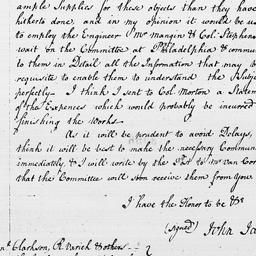 ample Supplies for these objects than they have
hitherto done, and in my opinion it would be us
to employ the Engineer (Mr Mangin & Col: Stephens
wait on the Committee at Philadelphia & commun
to them in Detail all the Information that may b
requisite to enable them to understand the Subje
perfectly— I think I sent to Col. Morton a Statem
of the Expences which would probably be incurred
finishing the Works.
As it will be prudent to avoid Delays,
think it will be best to make the necessary Communi
immediately, & I will write by the Post to Mr Van Cor
that the Committee will soon receive them from you
I have the Honor to be &c
(signed) John Ja
Clarkson, R. Varick & others